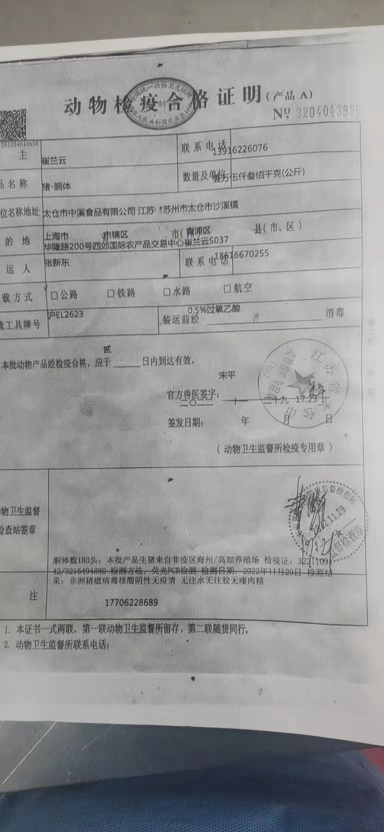 动物检疫合格证明(产品 A)
№ 3204043956
主
崔兰云
联系电话
13916226076
品名称
猪·胴体
数量及单位
壹万伍仟叁佰千克(公斤)
位名称地址
太仓市中溪食品有限公司 江苏 苏州市太仓市沙溪镇
的 地
上海市 市辖区 市( 青浦区 县(市、区)
华隆路200号西郊国际农产品交易中心崔兰云5037
运人
张新东
联系电话
18616670255
载方式 □公路 □铁路 □水路 □航空
载工具牌号
沪EL2623
装运前经
0.5%过氧乙酸
消毒
本批动物产品经检疫合格,应于 贰 日内到达有效。
宋平
官方兽医签字:
二十九 17:23
签发日期: 年 月 日
(动物卫生监督所检疫专用章)
动物卫生监督
检查站签章
胴体数180头; 本批产品生猪来自非疫区海州/高郧养殖场 检疫证:
检测方法:荧光PCR检测 检测日期:2022年11月29日 检测结
果:非洲猪瘟病毒核酸阴性无疫情 无注水无注胶无瘦肉精
注
17706228689
1. 本证书一式两联,第一联动物卫生监督所留存,第二联随货同行。
2. 动物卫生监督所联系电话: